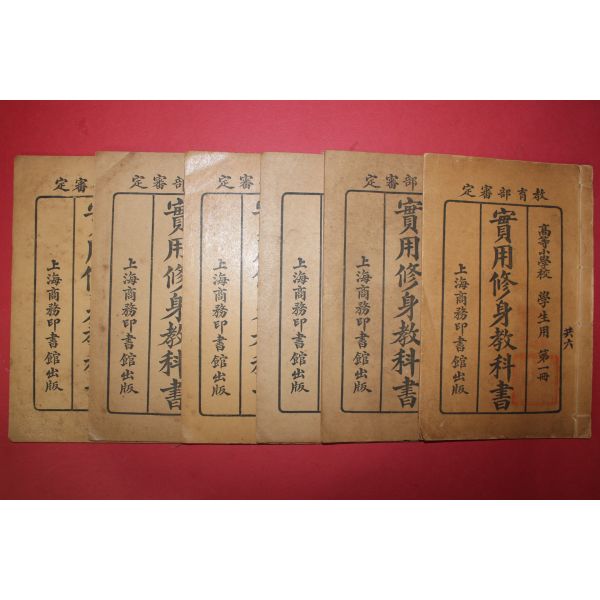 教育部審定
高等小學校 學生用 第一冊
實用修身教科書
上海商務印書館出版
共六
部審定
實用修身教科書
上海商務印書館出版
上海商務印書館出版
審定
上海商務印書館出版
部審定
實用修身教科書
上海商務印書館出版
審定
上海商務印書館出版